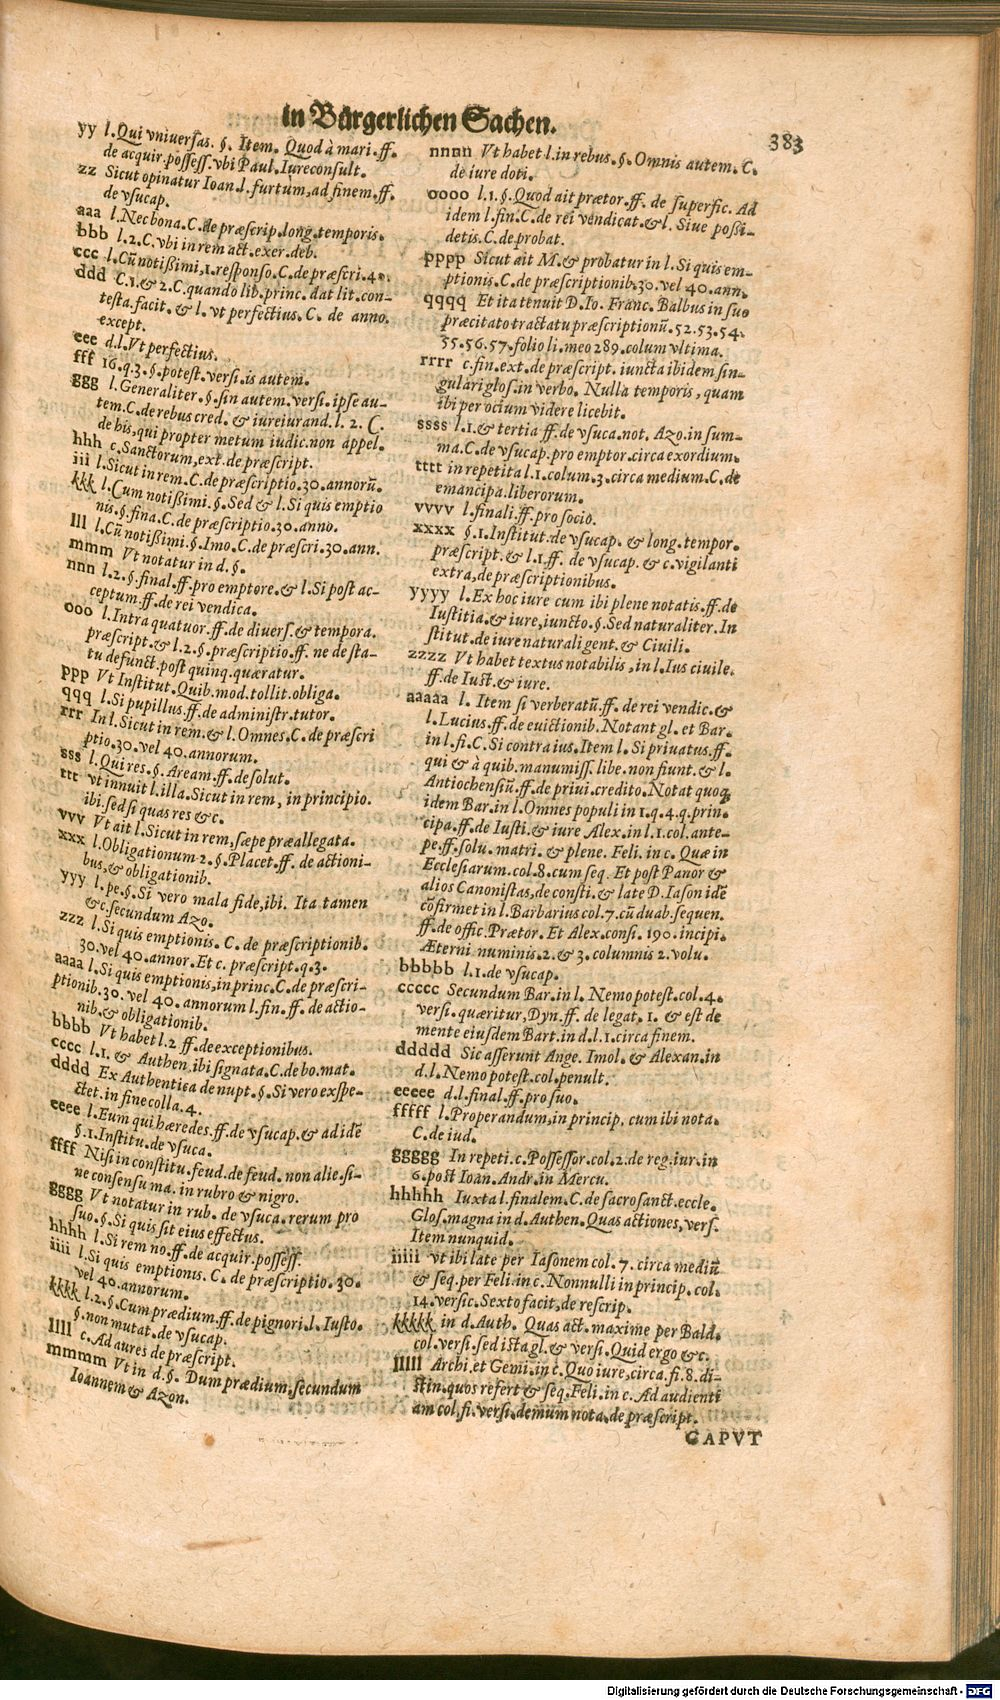 in Bürgerlichen Sachen.
383
yy l. Qui vniuersas. §. Item. Quod à mari. ff.
de acquir. possess. vbi Paul. Iureconsult.
zz Sicut opinatur Ioan. l. furtum, ad finem. ff.
de vsucap.
aaa l. Nec bona. C. de præscrip. long. temporis.
bbb l. 2. C. vbi in rem act. exer. deb.
ccc l. Cũ notißimi, 1. responso. C. de præscri. 40.
ddd C. 1. & 2. C. quando lib. princ. dat lit. con-
testa. facit. & l. vt perfectius. C. de anno.
except.
eee d. l. Vt perfectius.
fff 16. q. 3. §. potest. versi. is autem.
ggg l. Generaliter. §. sin autem. versi. ipse au-
tem. C. de rebus cred. & iureiurand. l. 2. C.
de his, qui propter metum iudic. non appel.
hhh c. Sanctorum, ext. de præscript.
iii l. Sicut in rem. C. de præscriptio. 30. annorũ.
kkk l. Cum notißimi. §. Sed & l. Si quis emptio
nis. §. fina. C. de præscriptio. 30. anno.
lll l. Cũ notißimi. §. Imo. C. de præscri. 30. ann.
mmm Vt notatur in d. §.
nnn l. 2. §. final. ff. pro emptore. & l. Si post ac-
ceptum. ff. de rei vendica.
ooo l. Intra quatuor. ff. de diuers. & tempora.
præscript. & l. 2. §. præscriptio. ff. ne de sta-
tu defunct. post quinq. quæratur.
ppp Vt Institut. Quib. mod. tollit. obliga.
qqq l. Si pupillus. ff. de administr. tutor.
rrr In l. Sicut in rem. & l. Omnes. C. de præscri
ptio. 30. vel 40. annorum.
sss l. Qui res. §. Aream. ff. de solut.
ttt vt innuit l. illa. Sicut in rem, in principio.
ibi. sed si quas res &c.
vvv Vt ait l. Sicut in rem, sæpe præallegata.
xxx l. Obligationum 2. §. Placet. ff. de actioni-
bus, & obligationib.
yyy l. pe. §. Si vero mala fide, ibi. Ita tamen
&c. secundum Azo.
zzz l. Si quis emptionis. C. de præscriptionib.
30. vel 40. annor. Et c. præscript. q. 3.
aaaa l. Si quis emptionis, in princ. C. de præscri-
ptionib. 30. vel 40. annorum l. fin. ff. de actio-
nib. & obligationib.
bbbb Vt habet l. 2 ff. de exceptionibus.
cccc l. 1. & Authen. ibi signata. C. de bo. mat.
dddd Ex Authentica de nupt. §. Si vero exspe-
ctet. in fine colla. 4.
eeee l. Eum qui hæredes. ff. de vsucap. & ad idẽ
§. 1. Institu. de vsuca.
ffff Nisi in constitu. feud. de feud. non alie. si-
ne consensu ma. in rubro & nigro.
gggg Vt notatur in rub. de vsuca. rerum pro
suo. §. Si quis sit eius effectus.
hhhh l. Si rem no. ff. de acquir. possess.
iiii l. Si quis emptionis. C. de præscriptio. 30.
vel 40. annorum.
kkkk l. 2. §. Cum prædium. ff. de pignori. l. Iusto.
§. non mutat. de vsucap.
llll c. Ad aures de præscript.
mmmm Vt in d. §. Dum prædium, secundum
Ioannem & Azon.
nnnn Vt habet l. in rebus. §. Omnis autem. C.
de iure doti.
oooo l. 1. §. Quod ait prætor. ff. de superfic. Ad
idem l. fin. C. de rei vendicat. & l. Siue poßi-
detis. C. de probat.
pppp Sicut ait M. & probatur in l. Si quis em-
ptionis. C. de præscriptionib. 30. vel 40. ann.
qqqq Et ita tenuit D. Io. Franc. Balbus in suo
præcitato tractatu præscriptionũ. 52. 53. 54.
55. 56. 57. folio li. meo 289. colum vltima.
rrrr c. fin. ext. de præscript. iuncta ibidem sin-
gulari glos. in verbo. Nulla temporis, quam
ibi per ocium videre licebit.
ssss l. 1. & tertia ff. de vsuca. not. Azo. in sum-
ma. C. de vsucap. pro emptor. circa exordium.
tttt in repetita l. 1. colum. 3. circa medium. C. de
emancipa. liberorum.
vvvv l. finali. ff. pro socio.
xxxx §. 1. Institut. de vsucap. & long. tempor.
præscript. & l. 1. ff. de vsucap. & c. vigilanti
extra, de præscriptionibus.
yyyy l. Ex hoc iure cum ibi plene notatis. ff. de
Iustitia. & iure, iuncto. §. Sed naturaliter. In
stitut. de iure natural. gent. & Ciuili.
zzzz Vt habet textus notabilis, in l. Ius ciuile.
ff. de Iust. & iure.
aaaaa l. Item si verberatũ. ff. de rei vendic. &
l. Lucius. ff. de euictionib. Notant gl. et Bar.
in l. fi. C. Si contra ius. Item l. Si priuatus. ff.
qui & à quib. manumiss. libe. non fiunt. & l.
Antiochensiũ. ff. de priui. credito. Notat quoq;
idem Bar. in l. Omnes populi in 1. q. 4. q. prin-
cipa. ff. de Iusti. & iure Alex. in l. 1. col. ante-
pe. ff. solu. matri. & plene. Feli. in c. Quæ in
Ecclesiarum. col. 8. cum seq. Et post Panor &
alios Canonistas, de consti. & late D. Iason idẽ
cõfirmet in l. Barbarius col. 7. cũ duab. sequen.
ff. de offic. Prætor. Et Alex. consi. 190. incipi.
Æterni numinis. 2. & 3. columnis 2. volu.
bbbbb l. 1. de vsucap.
ccccc Secundum Bar. in l. Nemo potest. col. 4.
versi. quæritur, Dyn. ff. de legat. 1. & est de
mente eiusdem Bart. in d. l. 1. circa finem.
ddddd Sic asserunt Ange. Imol. & Alexan. in
d. l. Nemo potest. col. penult.
eeeee d. l. final. ff. pro suo.
fffff l. Properandum, in princip. cum ibi nota.
C. de iud.
ggggg In repeti. c. Possessor. col. 2. de reg. iur. in
6. post Ioan. Andr. in Mercu.
hhhhh Iuxta l. finalem. C. de sacrosanct. eccle.
Glos. magna in d. Authen. Quas actiones, vers.
Item nunquid.
iiiii vt ibi late per Iasonem col. 7. circa mediũ
& seq. per Feli. in c. Nonnulli in princip. col.
14. versic. Sexto facit, de rescrip.
kkkkk in d. Auth. Quas act. maxime per Bald.
col. versi. sed ista gl. & versi. Quid ergo &c.
lllll Archi. et Gemi. in c. Quo iure, circa. fi. 8. di-
stin. quos refert & seq. Feli. in c. Ad audienti
am col. fi. versi. demum nota. de præscript.
CAPVT
Digitalisierung gefördert durch die Deutsche Forschungsgemeinschaft - DFG